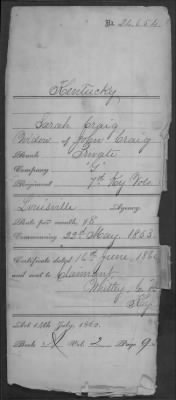 No. 24.654.
Kentucky
Sarah Craig
Widow of John Craig
Rank Private
Company "G"
Regiment 7th Ky Vols
Louisville Agency
Rate per month, $8.
Commencing 22nd May, 1863
Certificate dated 14th June, 186
and sent to Claimant
Whitley, Co
Ky
Act 14th July, 1862.
Book Vol. 2 Page 92